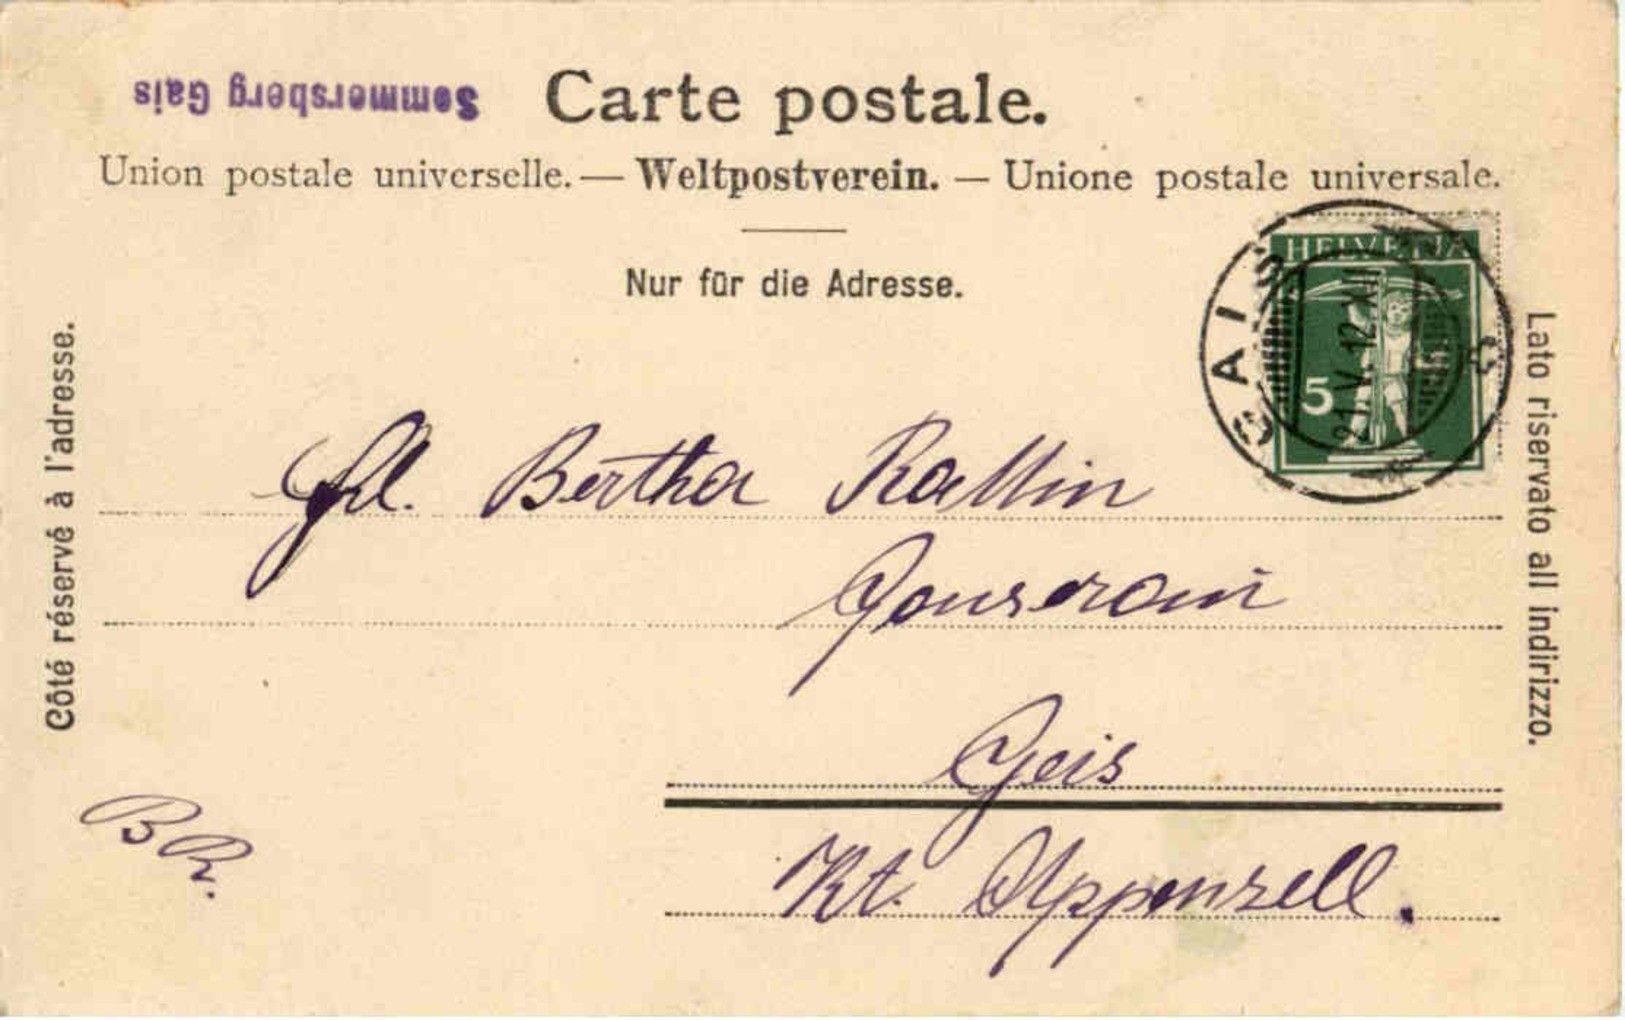 Sommersberg Gais
Carte postale.
Union postale universelle. — Weltpostverein. — Unione postale universale.
Nur für die Adresse.
Côté réservé à l'adresse.
Lato riservato all indirizzo.
HELVETIA
5
GAIS
21.V.12.XII
Frl. Bertha
Geis
Kt. Appenzell.
BR.